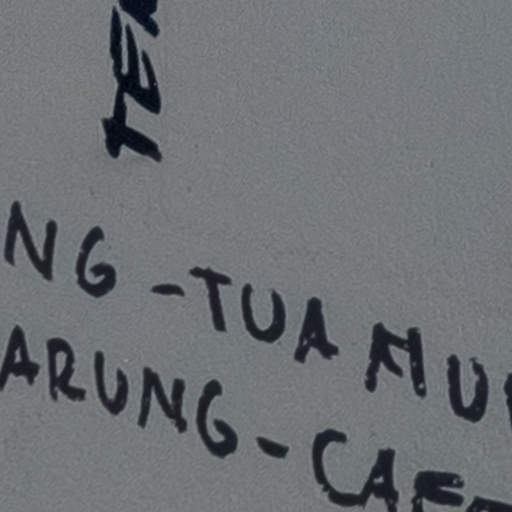 TER
NG - TUA MU
ARUNG - CAF